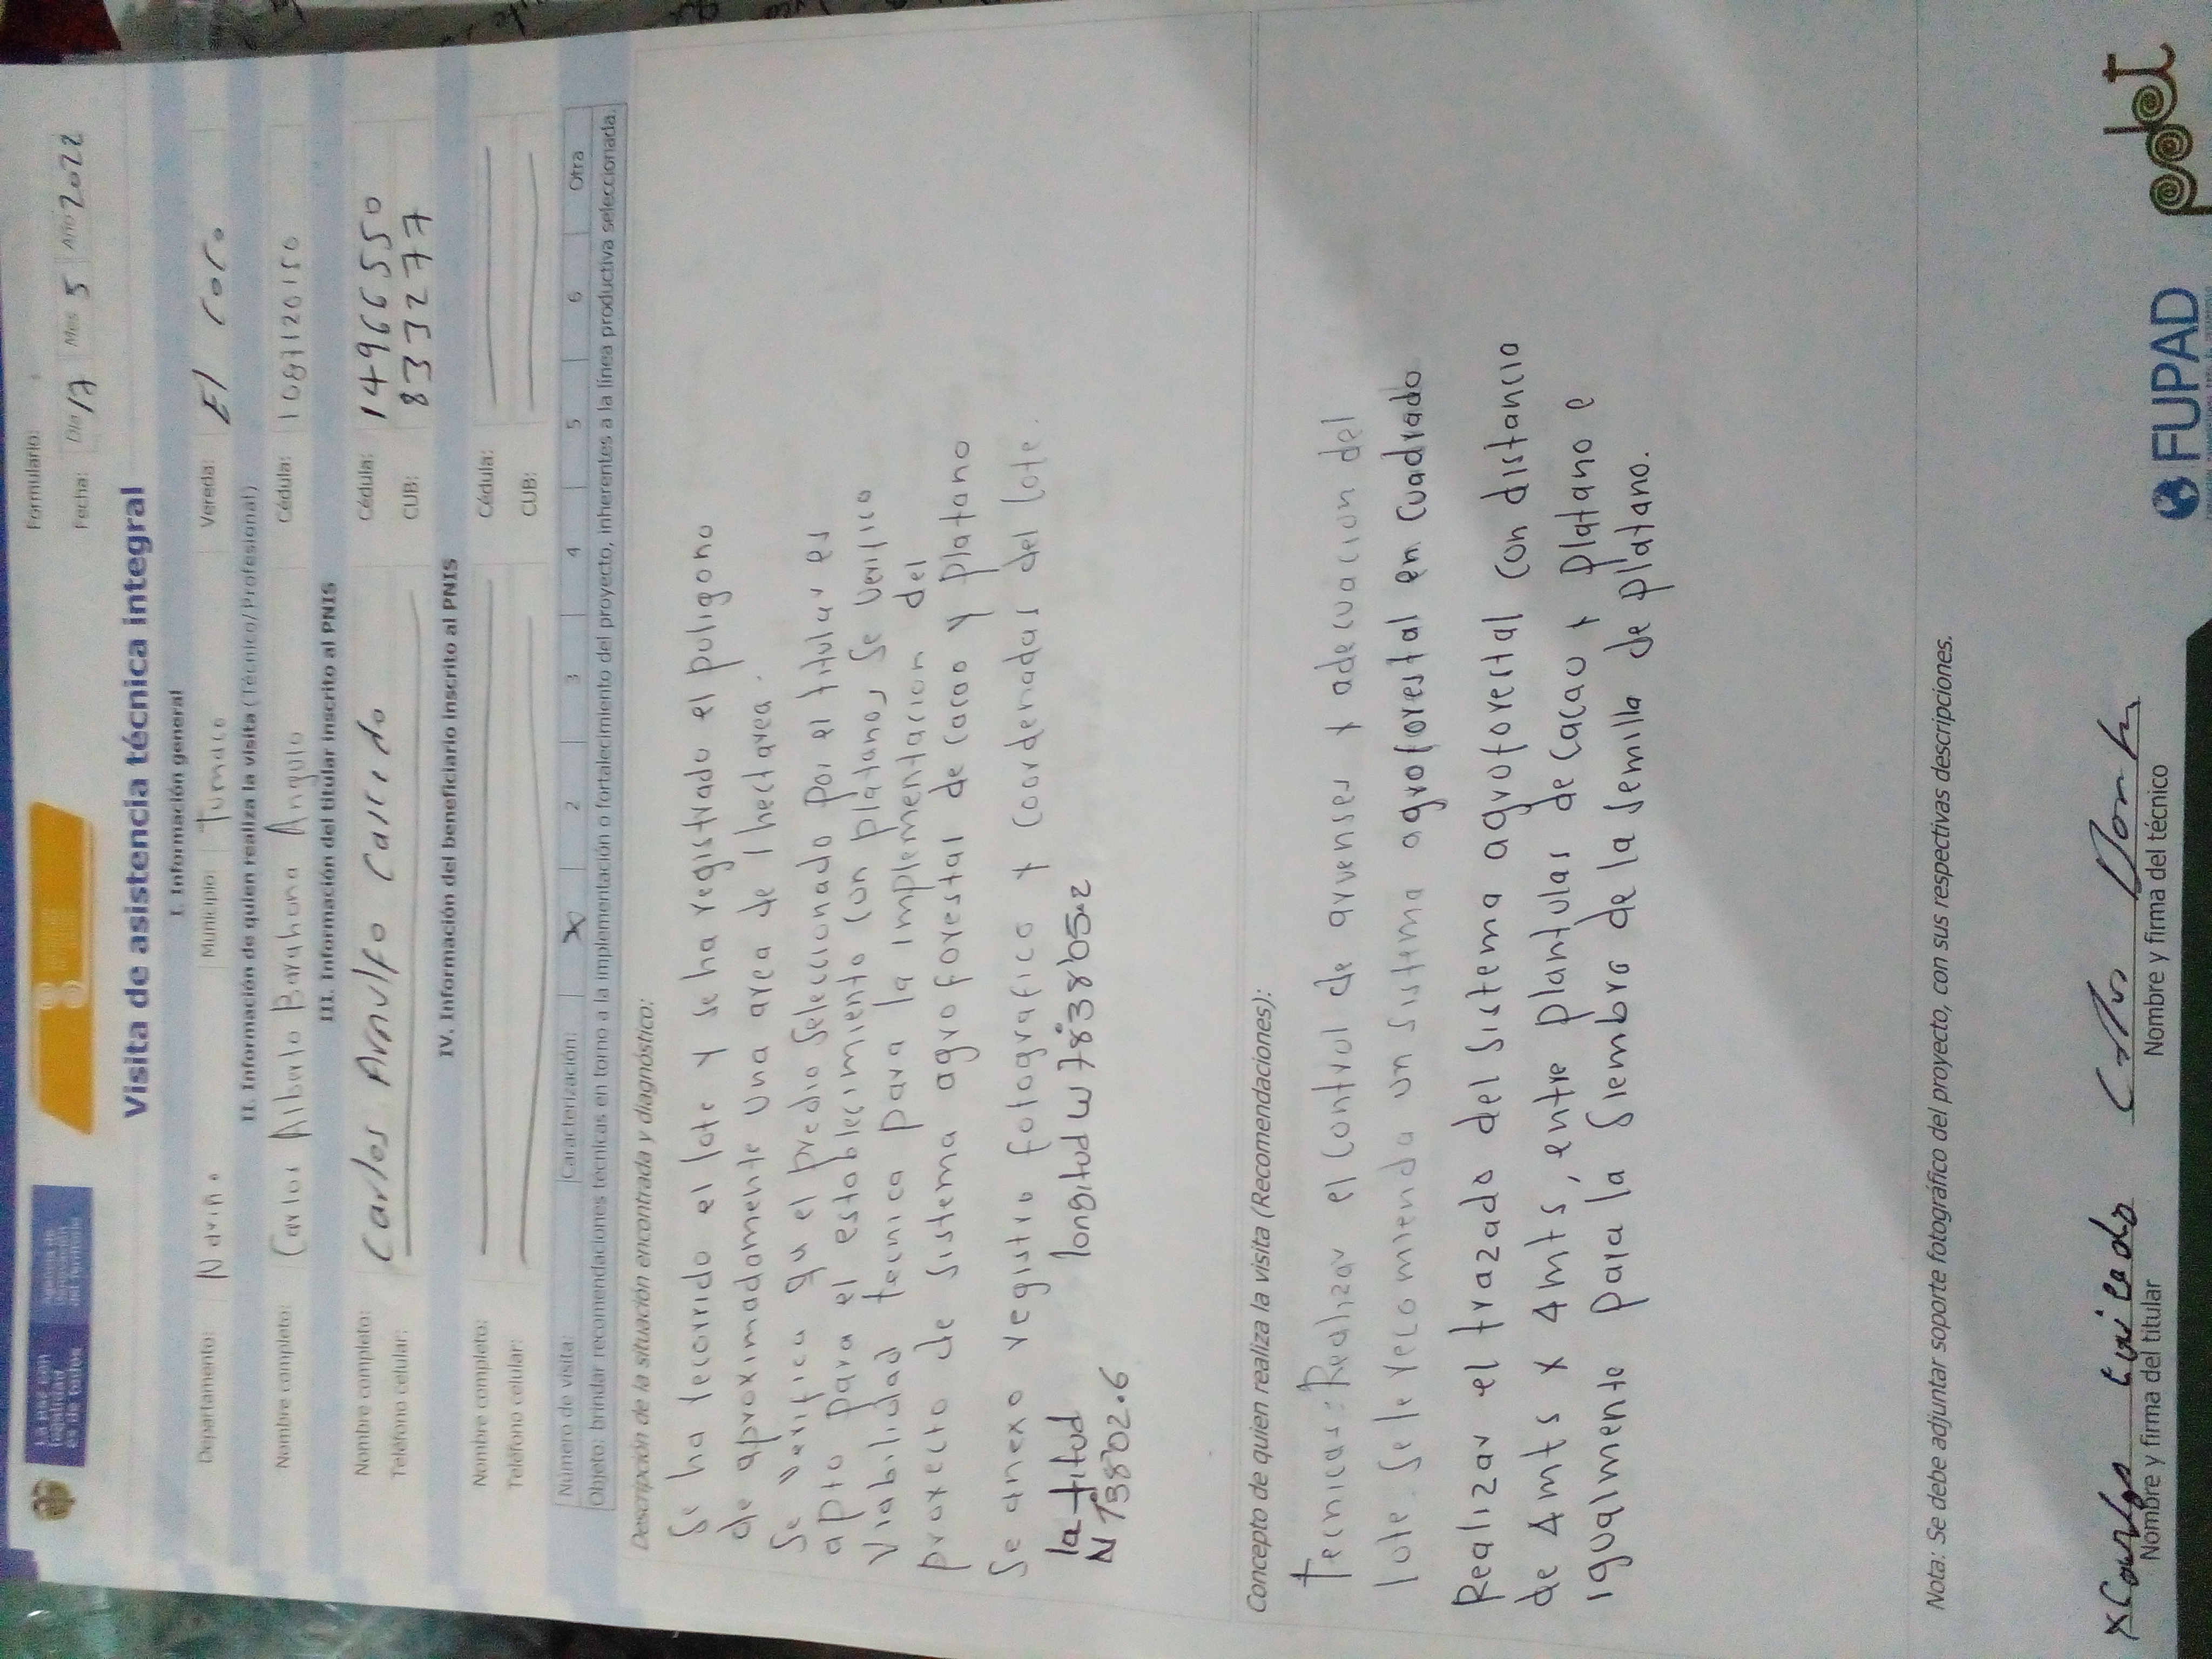 Formulario:
Fecha: Día 17 Mes 5 Año 2022
Visita de asistencia técnica integral
I. Información general
Departamento: Nariño Municipio: Tumaco Vereda: El Coco
II. Información de quien realiza la visita (Técnico/Profesional)
Nombre completo: Carlos Alberto Barahona Angulo Cédula: 1087120150
III. Información del titular inscrito al PNIS
Nombre completo: Carlos Arnulfo Caicedo Cédula: 14966550
Teléfono celular: CUB: 8332777
IV. Información del beneficiario inscrito al PNIS
Nombre completo: Cédula:
Teléfono celular: CUB:
Número de visita: Caracterización: X 2 3 4 5 6 Otra
Objeto: brindar recomendaciones técnicas en torno a la implementación o fortalecimiento del proyecto, inherentes a la línea productiva seleccionada.
Descripción de la situación encontrada y diagnóstico:
Se ha recorrido el lote y se ha registrado el poligono
de aproximadamente una area de 1 hectarea.
Se verifica qu el predio seleccionado por el titular es
apto para el establecimiento con platano, se verifico
viabilidad tecnica para la implementacion del
proyecto de sistema agroforestal de cacao y platano
Se anexo registro fotografico y coordenadas del lote.
latitud longitud W 78°38'05.2
N 1°38'02.6
Concepto de quien realiza la visita (Recomendaciones):
Tecnicas: Realizar el control de arvenses y adecuacion del
lote. Se le recomienda un sistema agroforestal en cuadrado
Realizar el trazado del sistema agroforestal con distancia
de 4mts x 4mts, entre plantulas de cacao y platano e
igualmente para la siembra de la semilla de platano.
Nota: Se debe adjuntar soporte fotográfico del proyecto, con sus respectivas descripciones.
x Carlos Caicedo
Nombre y firma del titular Nombre y firma del técnico
FUPAD pdet